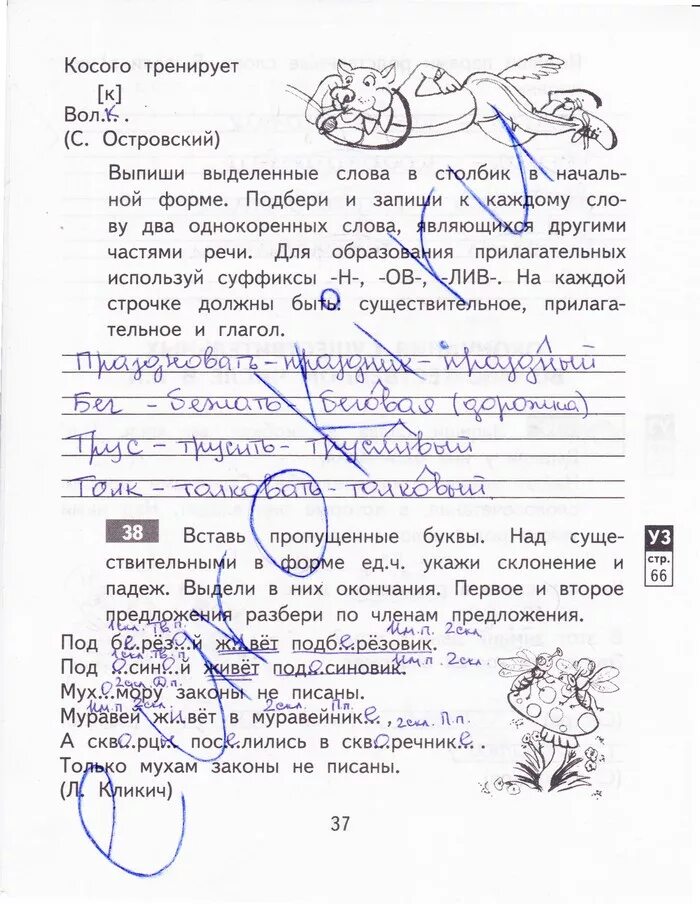 Косого тренирует
[к]
Вол.к. .
(С. Островский)
Выпиши выделенные слова в столбик в началь-
ной форме. Подбери и запиши к каждому сло-
ву два однокоренных слова, являющихся другими
частями речи. Для образования прилагательных
используй суффиксы -Н-, -ОВ-, -ЛИВ-. На каждой
строчке должны быть: существительное, прилага-
тельное и глагол.
Праздновать - праздник - праздный
Бег - бежать - беговая (дорожка)
Трус - трусить - трусливый
Толк - толковать - толковый
38 Вставь пропущенные буквы. Над суще-
ствительными в форме ед.ч. укажи склонение и
падеж. Выдели в них окончания. Первое и второе
предложения разбери по членам предложения.
1скл. Тв.п. Им.п. 2скл.
Под б.е.рёз.о.й ж.и.вёт подб.е.рёзовик.
1скл. Тв.п. Им.п. 2скл.
Под .о.син.о.й живёт под.о.синовик.
2скл. Д.п.
Мух.о.мору законы не писаны.
Им.п. 2скл. 2скл. П.п.
Муравей ж.и.вёт в муравейник.е. ,
2скл. П.п.
А скв.о.рцы пос.е.лились в скв.о.речник.е. .
Только мухам законы не писаны.
(Л. Кликич)
УЗ
стр.
66
37